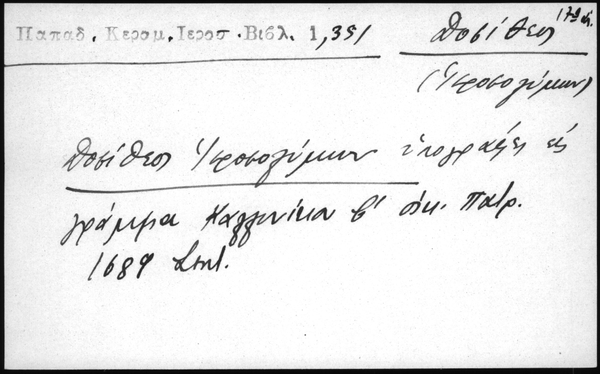 Παπαδ. Κεραμ. Ιεροσ. Βιβλ. 1,351
Δοσίθεος 17ος αἰ.
(Ἱεροσολύμων)
Δοσίθεος Ἱεροσολύμων ὑπογράφει εἰς
γράμμα Καλλινίκου β' οἰκ. Πατρ.
1689